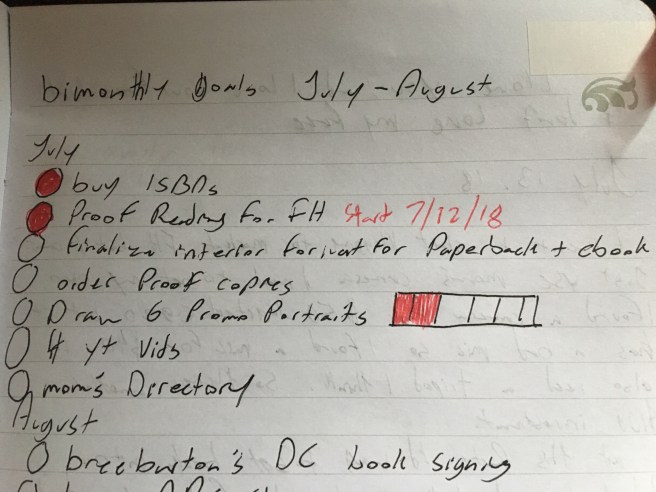 bimonthly Goals July - August
July
buy ISBNs
Proof Reading for FH Start 7/12/18
finalize interior format for Paperback + ebook
order Proof copies
Draw 6 Promo Portraits
4 yt Vids
mom's Directory
August
bree burton's DC book signing